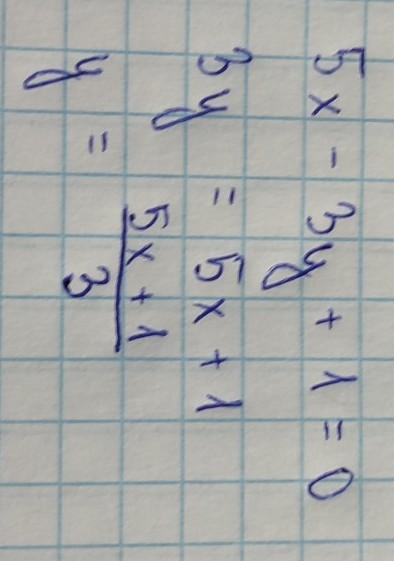 5x - 3y + 1 = 0
3y = 5x + 1
y = \frac{5x + 1}{3}